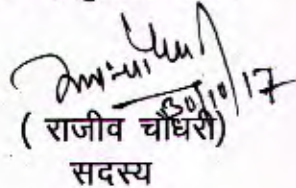 30/10/17
( राजीव चौधरी)
सदस्य